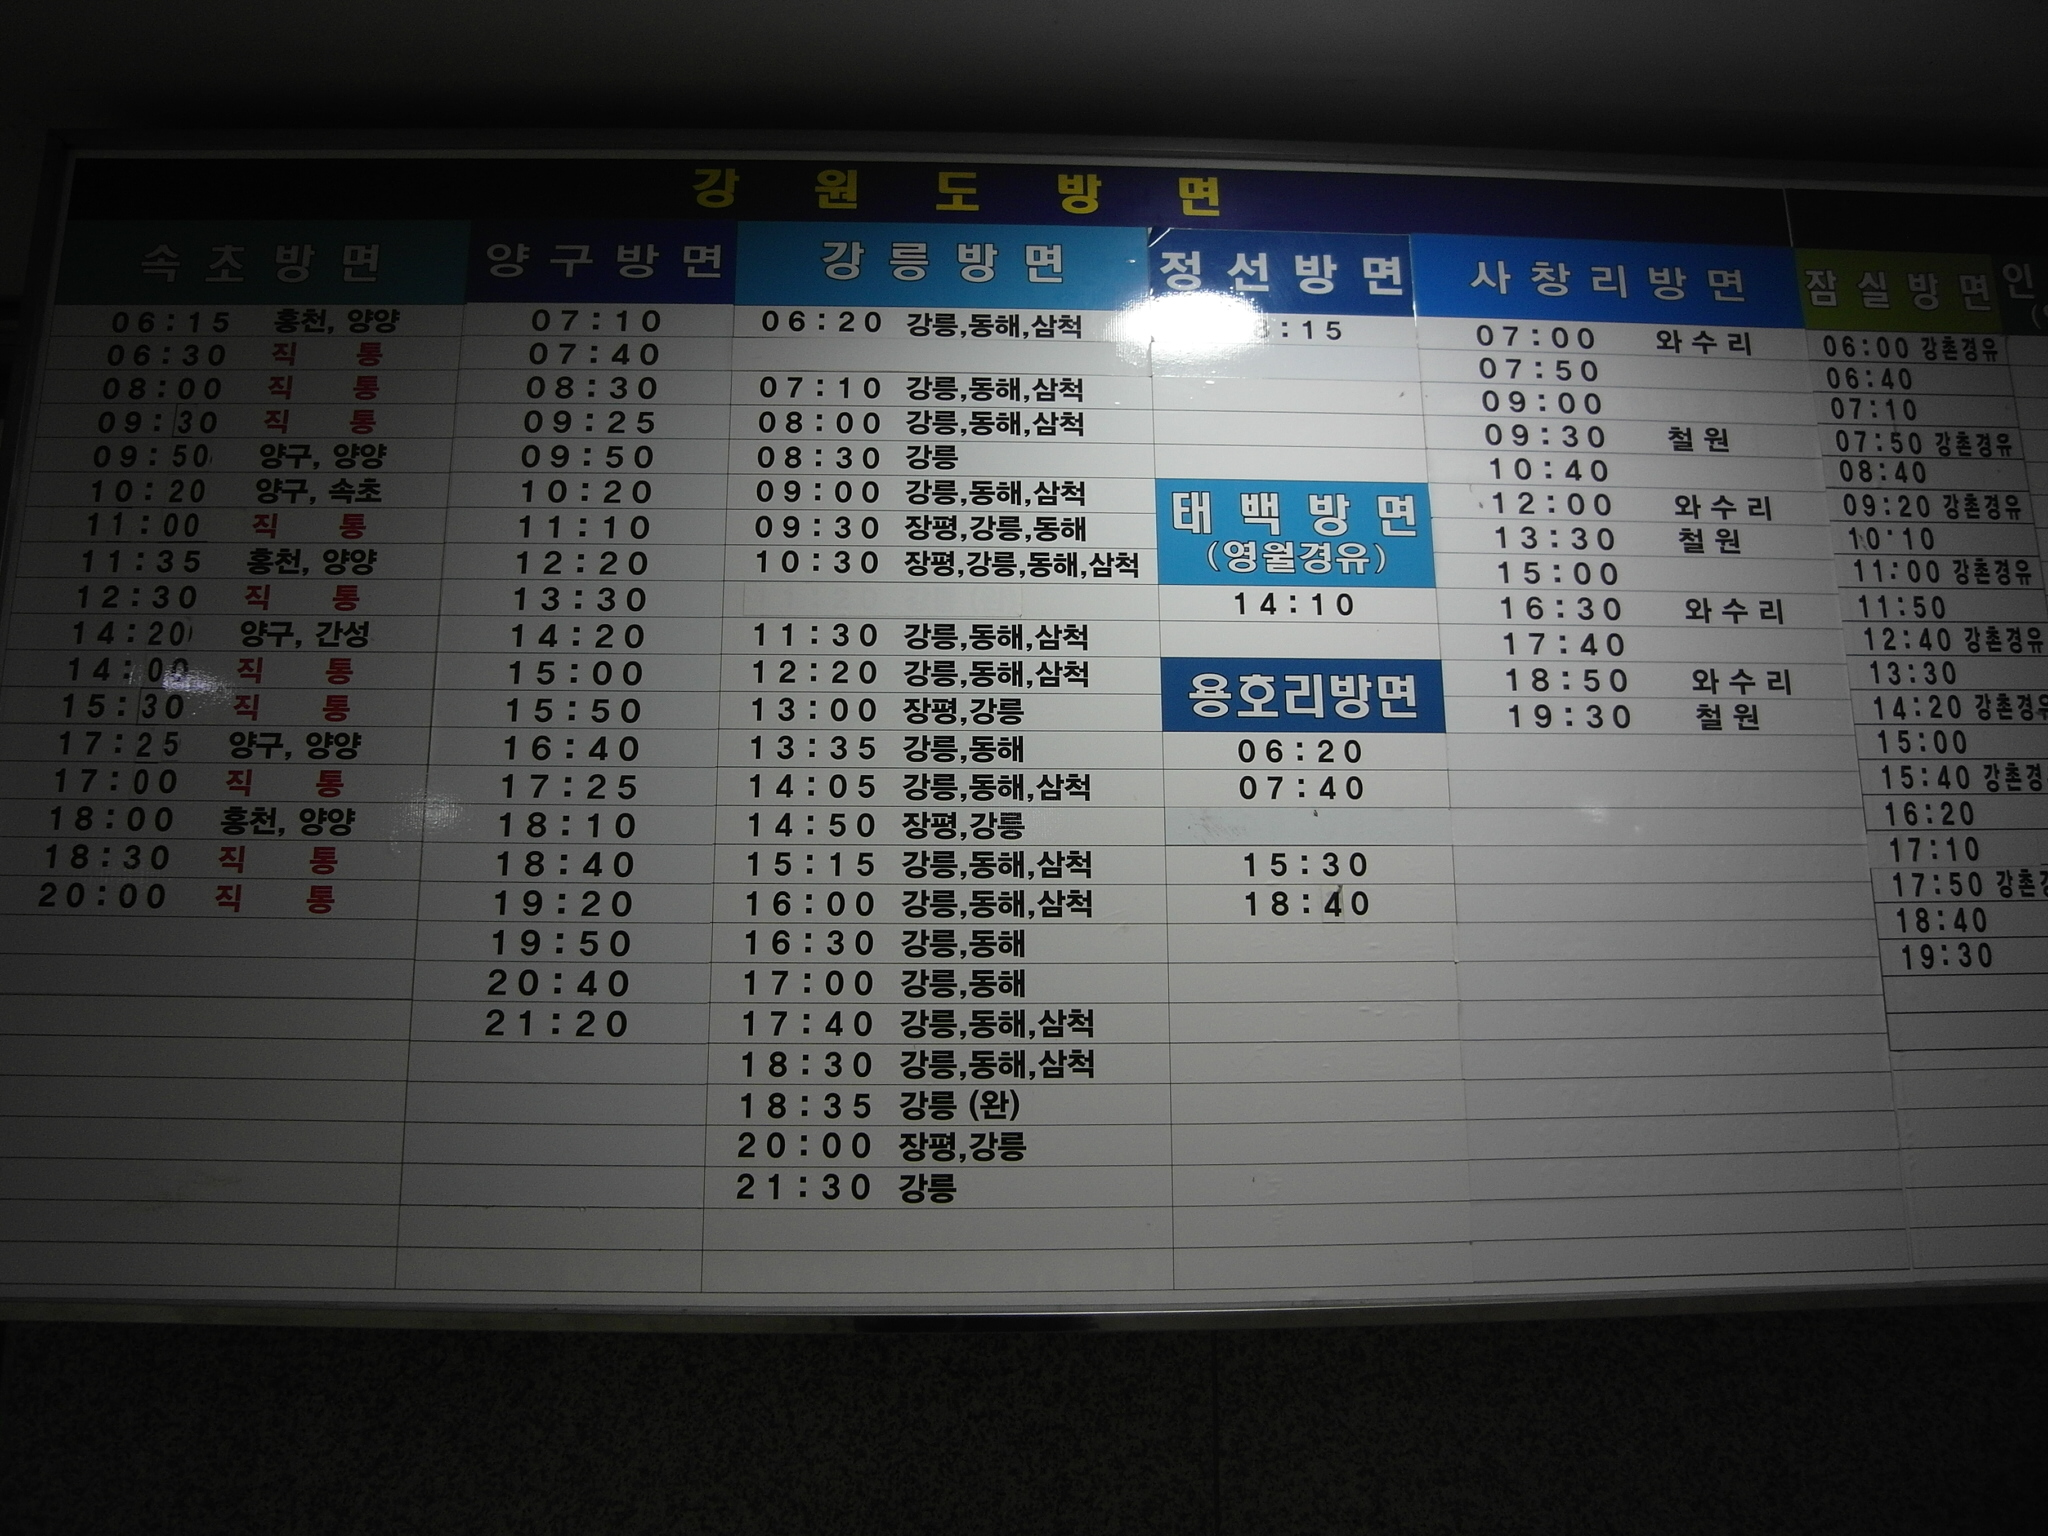 강원도방면
속초방면
06:15 홍천, 양양
06:30 직통
08:00 직통
09:30 직통
09:50 양구, 양양
10:20 양구, 속초
11:00 직통
11:35 홍천, 양양
12:30 직통
14:20 양구, 간성
14:00 직통
15:30 직통
17:25 양구, 양양
17:00 직통
18:00 홍천, 양양
18:30 직통
20:00 직통
양구방면
07:10
07:40
08:30
09:25
09:50
10:20
11:10
12:20
13:30
14:20
15:00
15:50
16:40
17:25
18:10
18:40
19:20
19:50
20:40
21:20
강릉방면
06:20 강릉,동해,삼척
07:10 강릉,동해,삼척
08:00 강릉,동해,삼척
08:30 강릉
09:00 강릉,동해,삼척
09:30 장평,강릉,동해
10:30 장평,강릉,동해,삼척
11:30 강릉,동해,삼척
12:20 강릉,동해,삼척
13:00 장평,강릉
13:35 강릉,동해
14:05 강릉,동해,삼척
14:50 장평,강릉
15:15 강릉,동해,삼척
16:00 강릉,동해,삼척
16:30 강릉,동해
17:00 강릉,동해
17:40 강릉,동해,삼척
18:30 강릉,동해,삼척
18:35 강릉 (완)
20:00 장평,강릉
21:30 강릉
정선방면
태백방면
(영월경유)
14:10
용호리방면
06:20
07:40
15:30
18:40
사창리방면
07:00 와수리
07:50
09:00
09:30 철원
10:40
12:00 와수리
13:30 철원
15:00
16:30 와수리
17:40
18:50 와수리
19:30 철원
잠실방면
06:00 강촌경유
06:40
07:10
07:50 강촌경유
08:40
09:20 강촌경유
10:10
11:00 강촌경유
11:50
12:40 강촌경유
13:30
14:20 강촌경유
15:00
15:40 강촌경
16:20
17:10
17:50 강촌
18:40
19:30
인